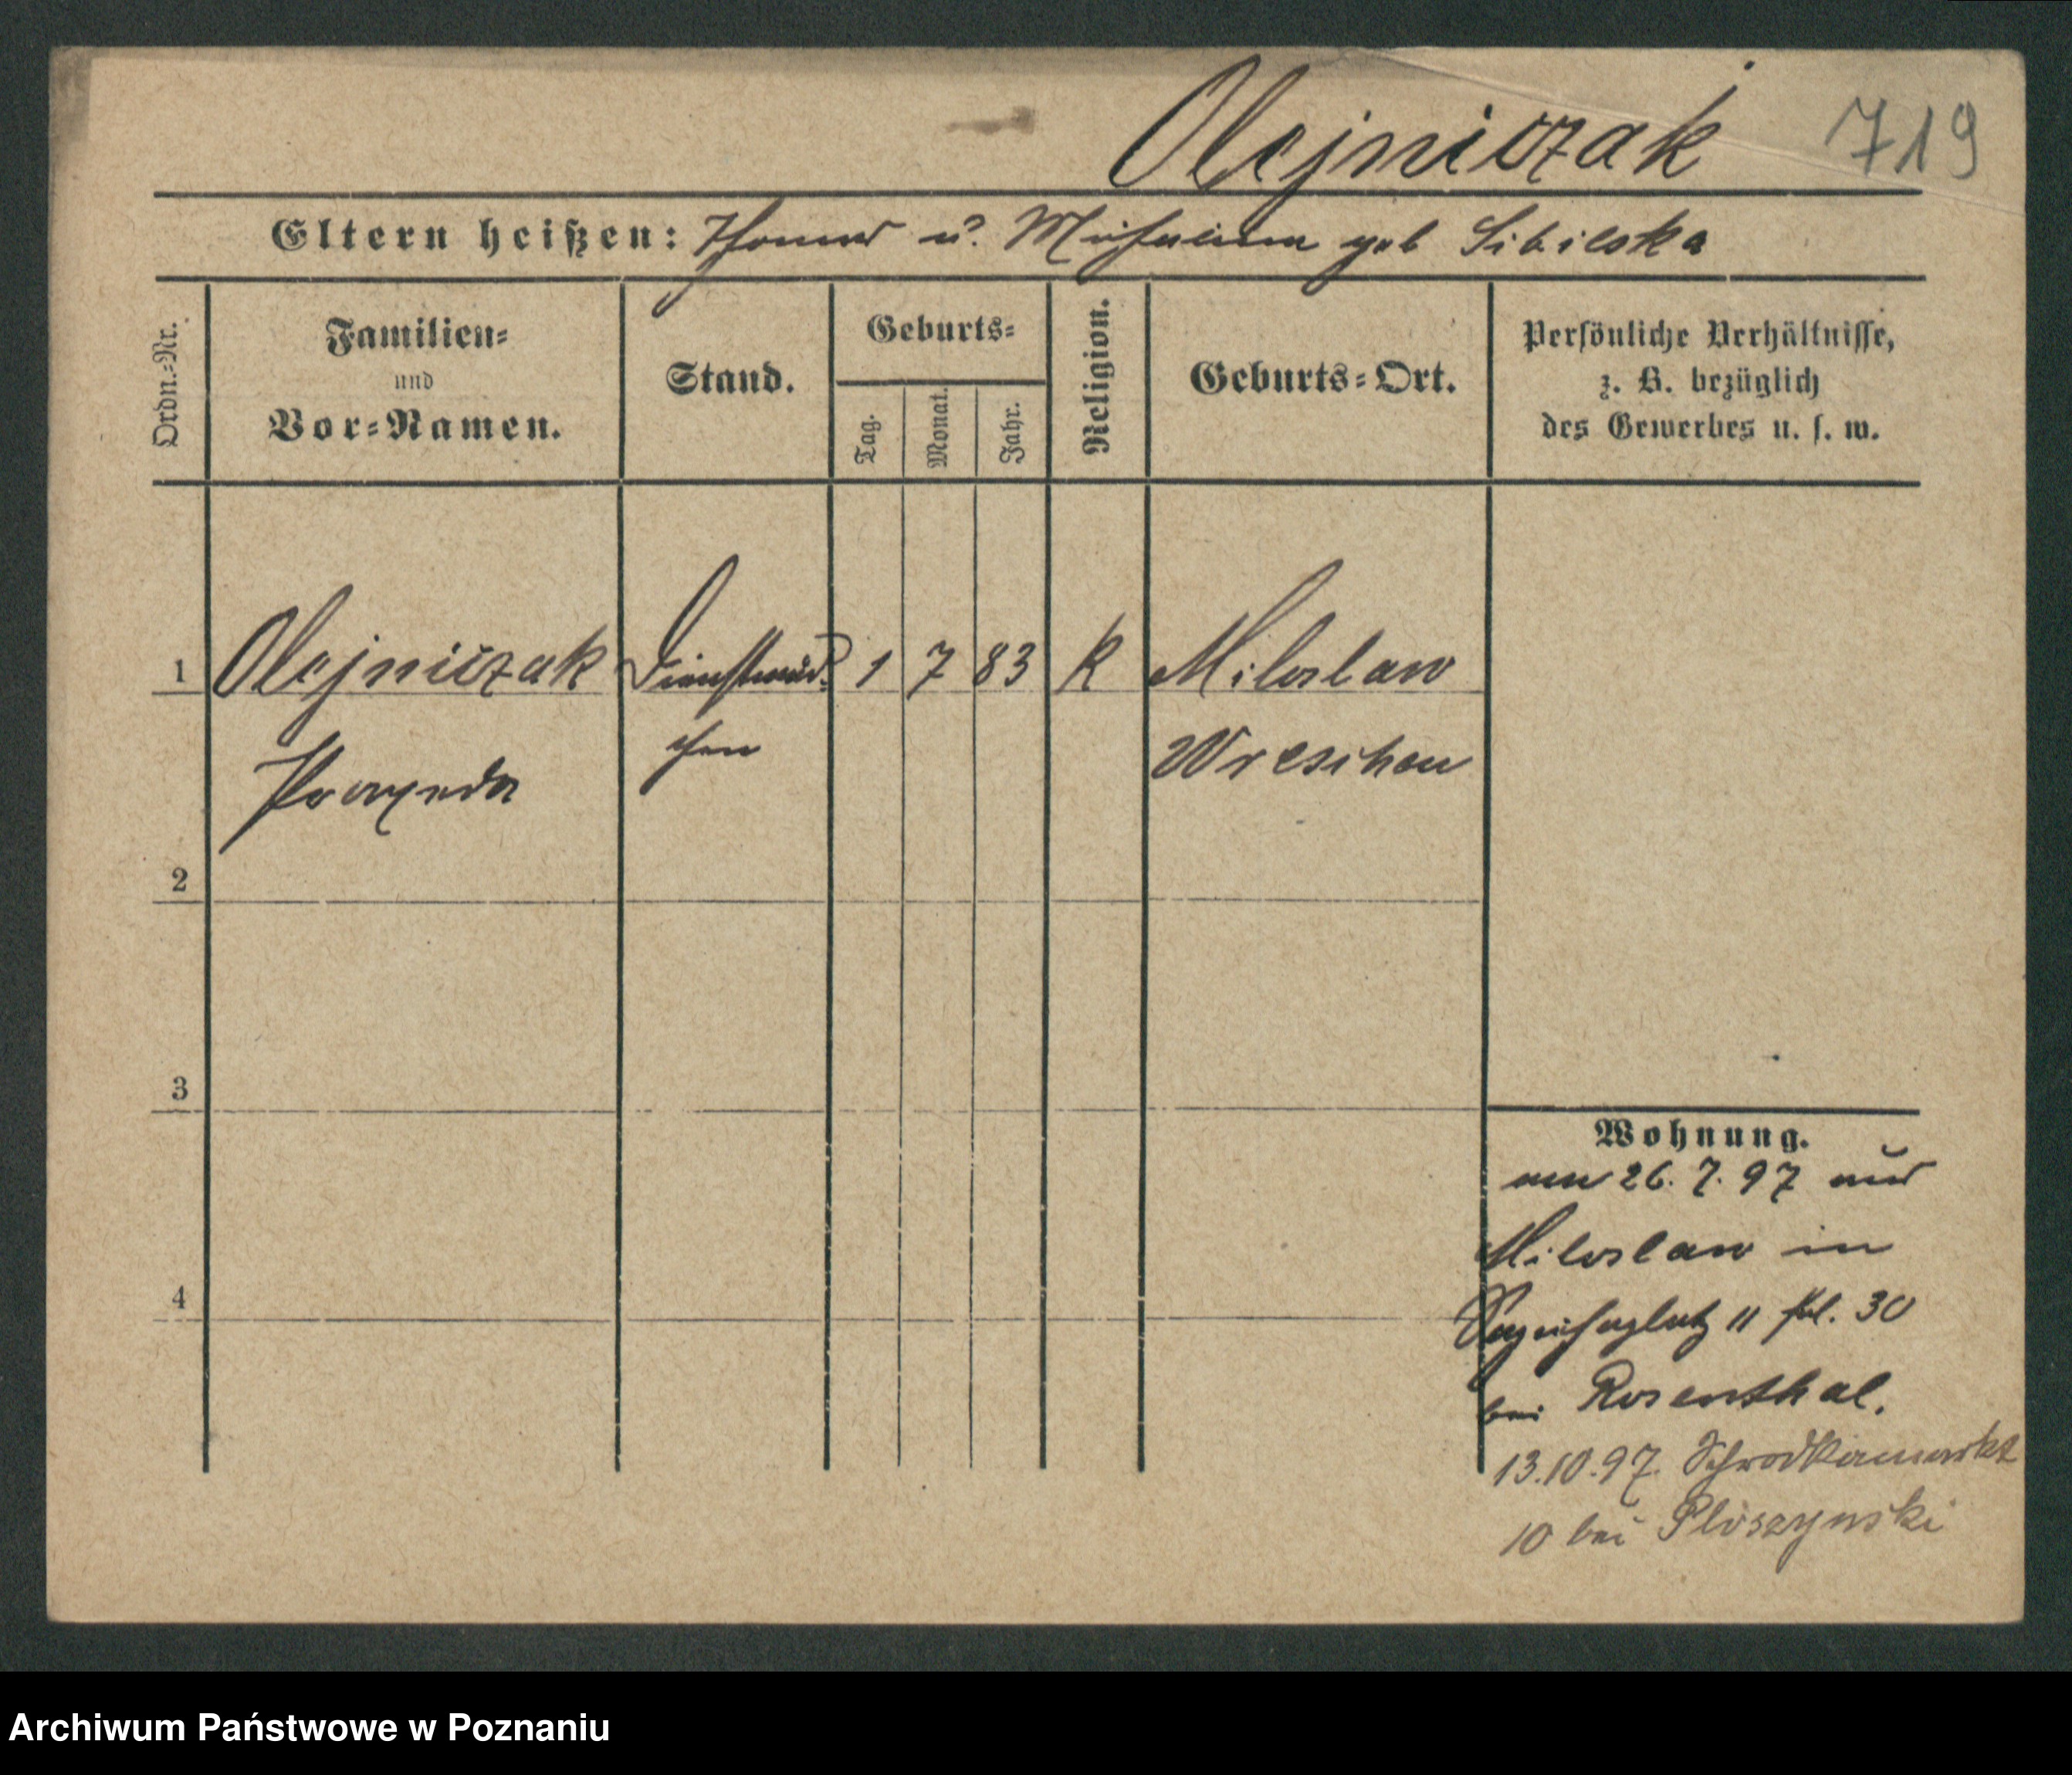 Olejniczak 719
Eltern heißen: Thomas u. Michalina geb Sibilska
Ordn.-Nr.
Familien- und Vor-Namen.
Stand.
Geburts-
Tag.
Monat.
Jahr.
Religion.
Geburts-Ort.
Persönliche Verhältnisse,
z. B. bezüglich
des Gewerbes u. s. w.
1 Olejniczak Dienstmäd- 1 7 83 K Miloslaw
chen Wreschen
Praxeda
2
3
4
Wohnung.
am 26. 7. 97 aus
Miloslaw in
Sapiehaplatz 11 fol. 30
bei Rosenthal.
13.10.97. Schrodkamarkt
10 bei Pliszynski
Archiwum Państwowe w Poznaniu